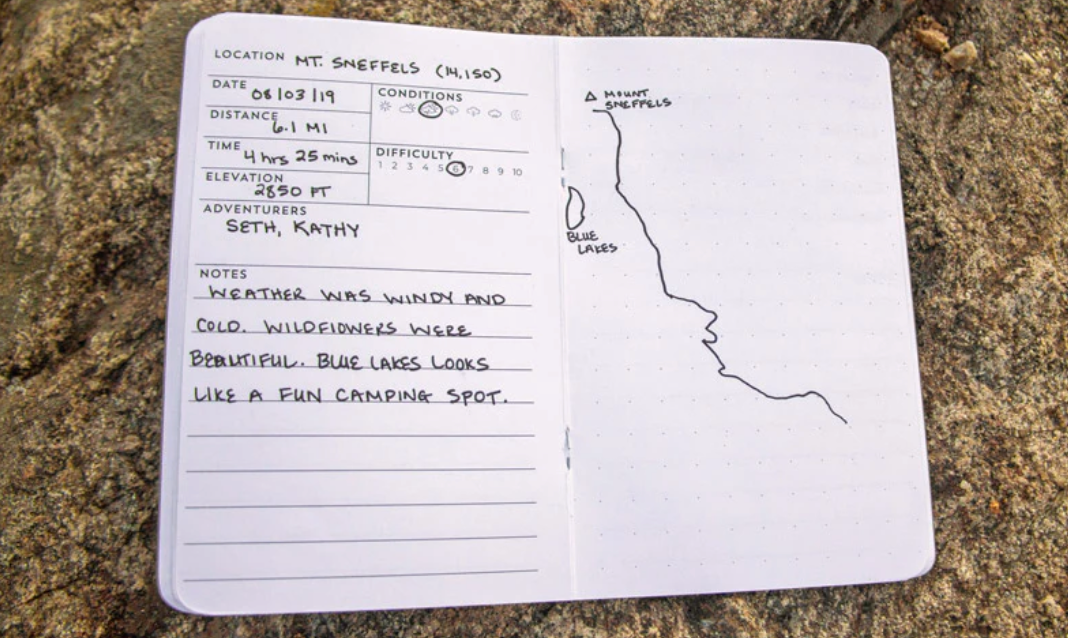 LOCATION MT. SNEFFELS (14,150)
DATE 08/03/19
CONDITIONS
DISTANCE 6.1 MI
TIME 4 hrs 25 mins
DIFFICULTY
1 2 3 4 5 6 7 8 9 10
ELEVATION 2850 FT
ADVENTURERS
SETH, KATHY
NOTES
WEATHER WAS WINDY AND
COLD. WILDFLOWERS WERE
BEAUTIFUL. BLUE LAKES LOOKS
LIKE A FUN CAMPING SPOT.
MOUNT
SNEFFELS
BLUE
LAKES